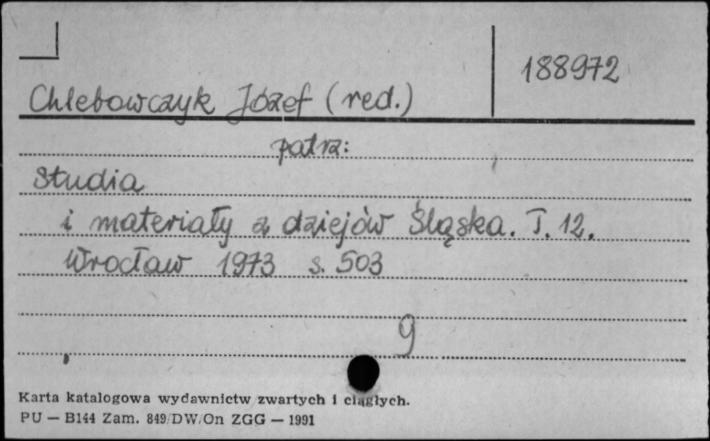 188972
Chlebowczyk Józef (red.)
patrz:
Studia
i materiały z dziejów Śląska. T. 12.
Wrocław 1973 s. 503
g
Karta katalogowa wydawnictw zwartych i ciągłych.
PU — B144 Zam. 849/DW/On ZGG — 1991